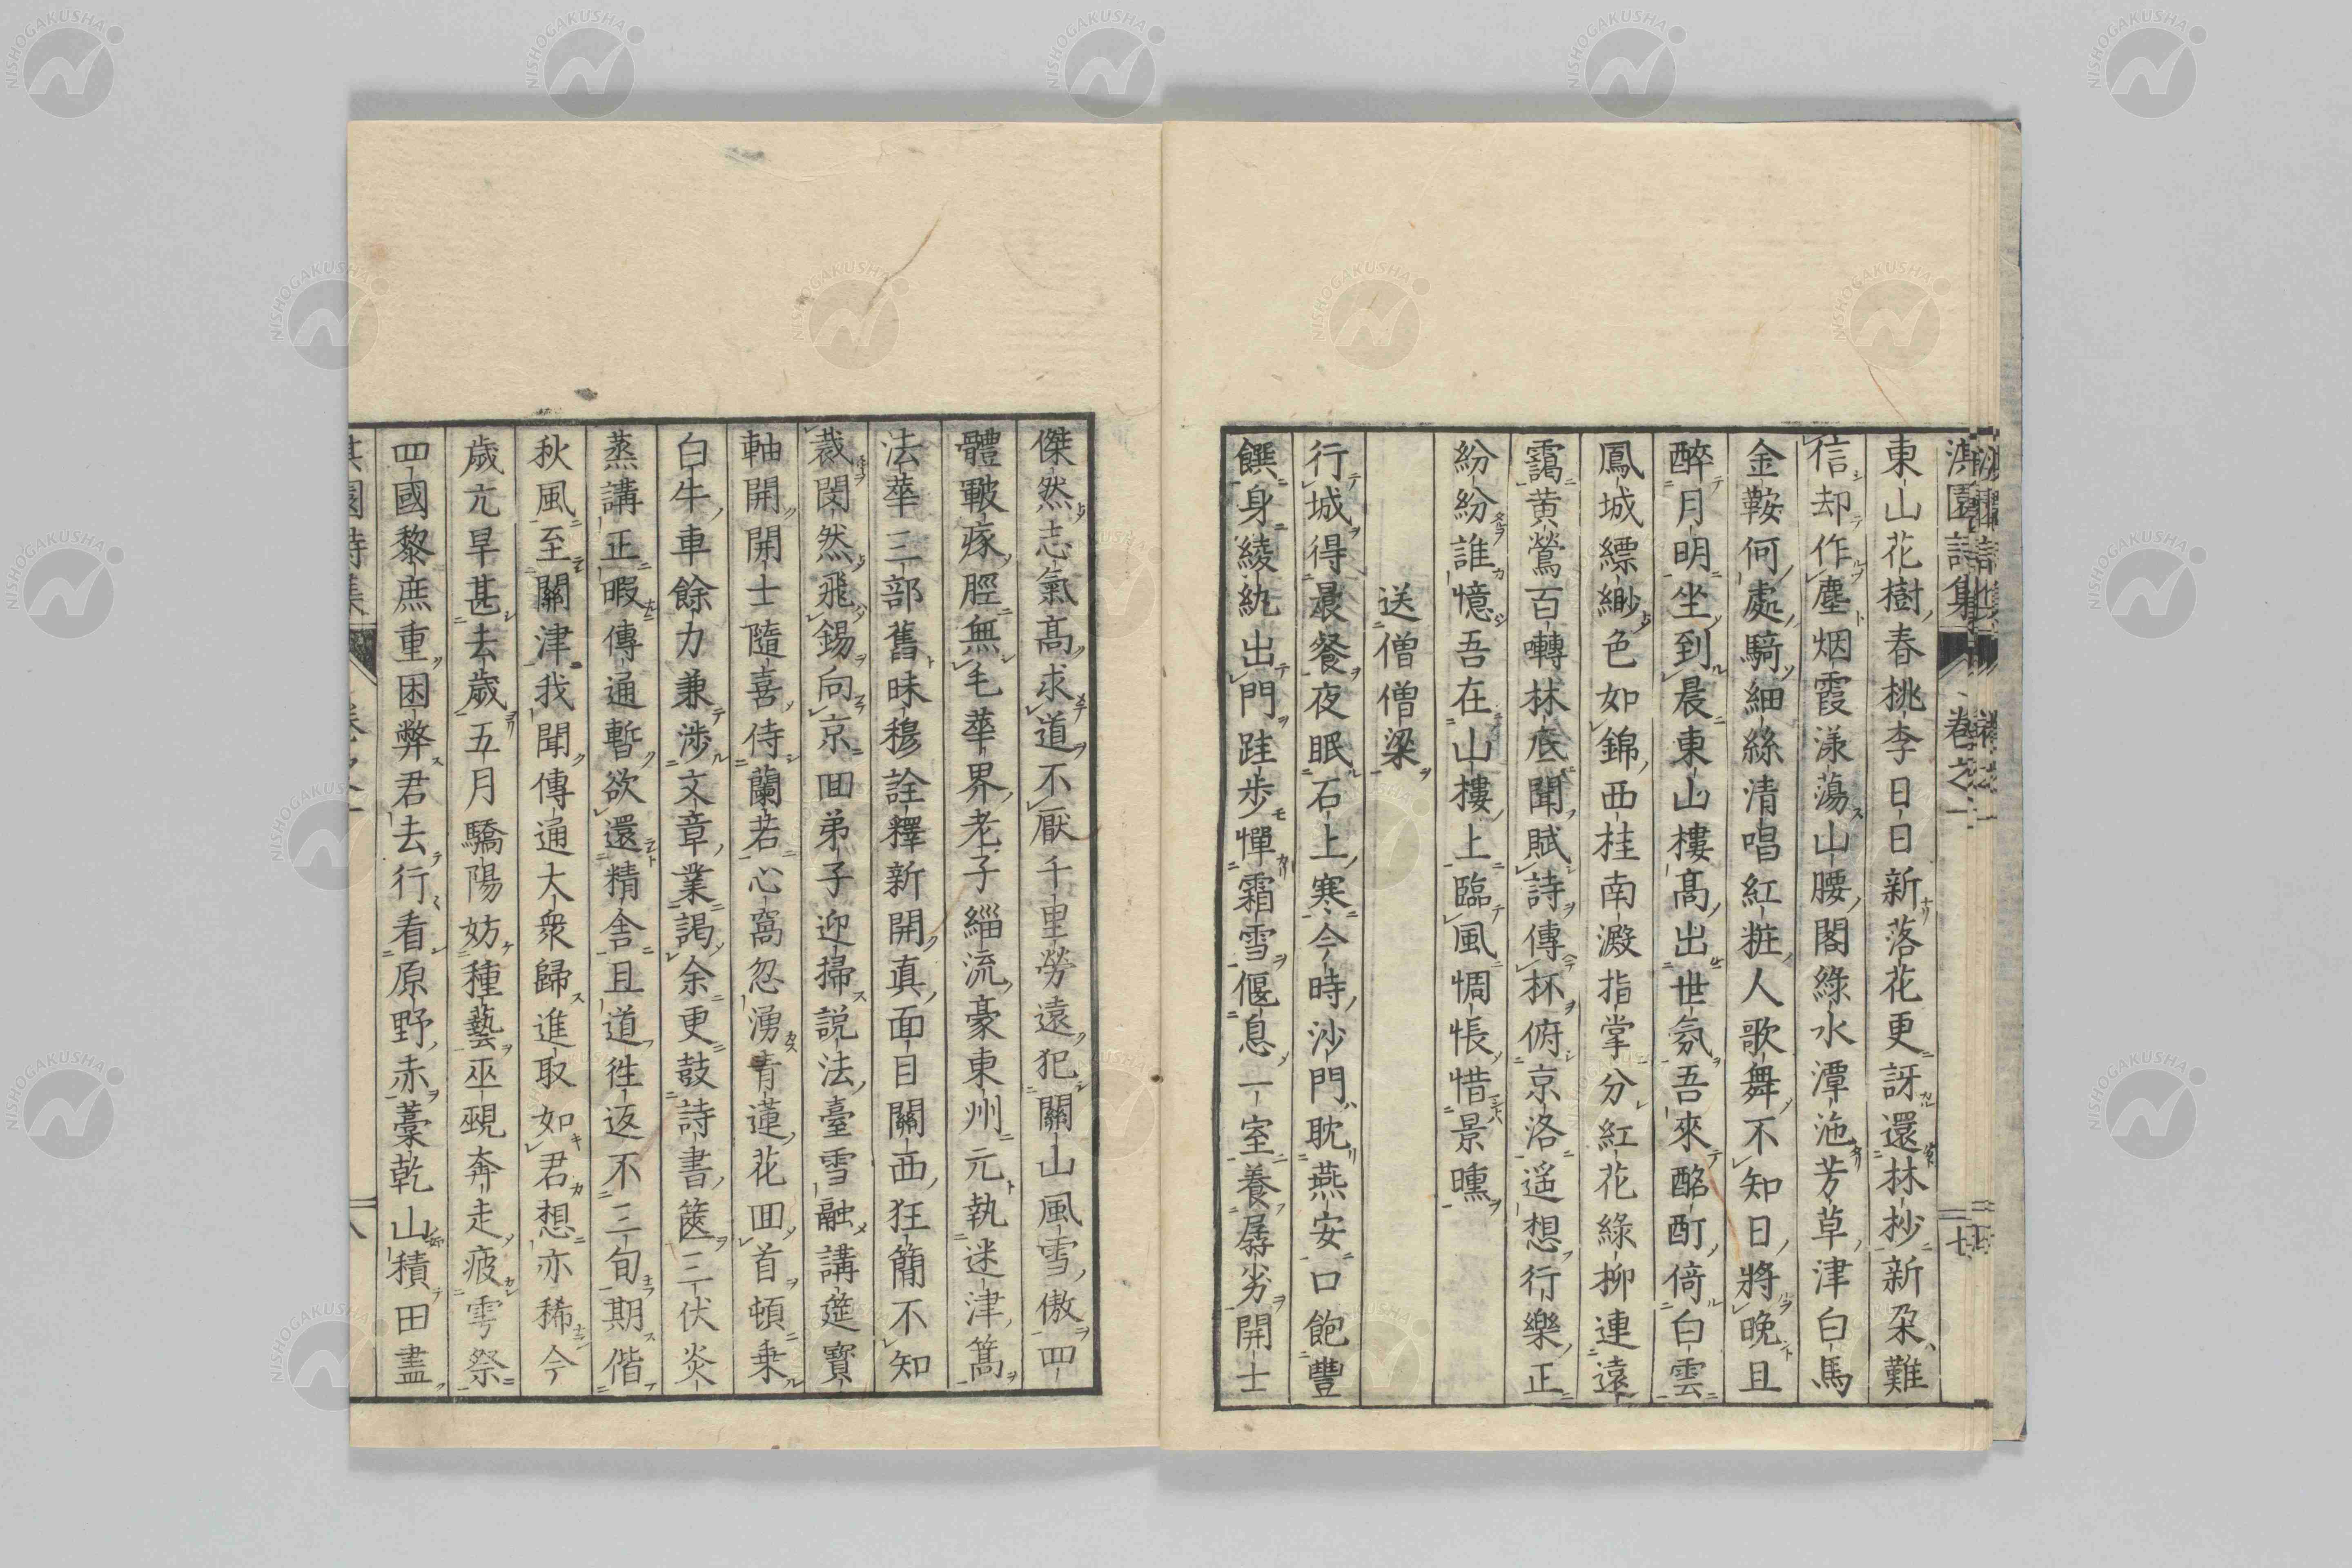 東山花樹春桃李日日新落花更訝還林杪新朶難
信却作塵烟霞漾蕩山腰閣綠水潭沲芳草津白馬
金鞍何處騎細絲清唱紅粧人歌舞不知日將晚且
醉月明坐到晨東山樓高出世氛吾來酩酊倚白雲
鳳城縹緲色如錦西桂南澱指掌分紅花綠柳連遠
靄黄鶯百囀林底聞賦詩傳杯俯京洛遥想行樂正
紛紛誰憶吾在山樓上臨風惆悵惜景曛
送僧僧梁
行城得晨餐夜眠石上寒今時沙門耽燕安口飽豐
饌身綾紈出門跬步憚霜雪偃息一室養孱劣開士
傑然志氣高求道不厭千里勞遠犯關山風雪傲四
體皸瘃脛無毛華界老子緇流豪東州元執迷津篙
法華三部舊昧穆詮釋新開真面目關西狂簡不知
裁閔然飛錫向京回弟子迎掃説法臺雪融講筵寶
軸開開士隨喜侍蘭若心窩忽湧青蓮花回首頓乗
白牛車餘力兼渉文章業謁余更鼓詩書篋三伏炎
蒸講正暇傳通暫欲還精舎且道往返不三旬期偕
秋風至關津我聞傳通大衆歸進取如君想亦稀今
歳亢旱甚去歳五月驕陽妨種藝巫覡奔走疲雩祭
四國黎庶重困弊君去行看原野赤藁乾山積田盡
淇園詩集 卷之一 二十